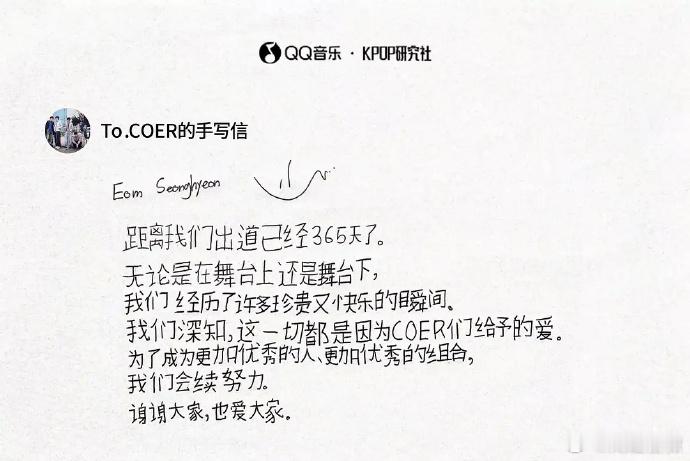 QQ音乐·KPOP研究社
To.COER的手写信
Eom Seonghyeon
距离我们出道已经365天了。
无论是在舞台上还是舞台下，
我们经历了许多珍贵又快乐的瞬间。
我们深知，这一切都是因为COER们给予的爱。
为了成为更加优秀的人、更加优秀的组合，
我们会续努力。
谢谢大家，也爱大家。